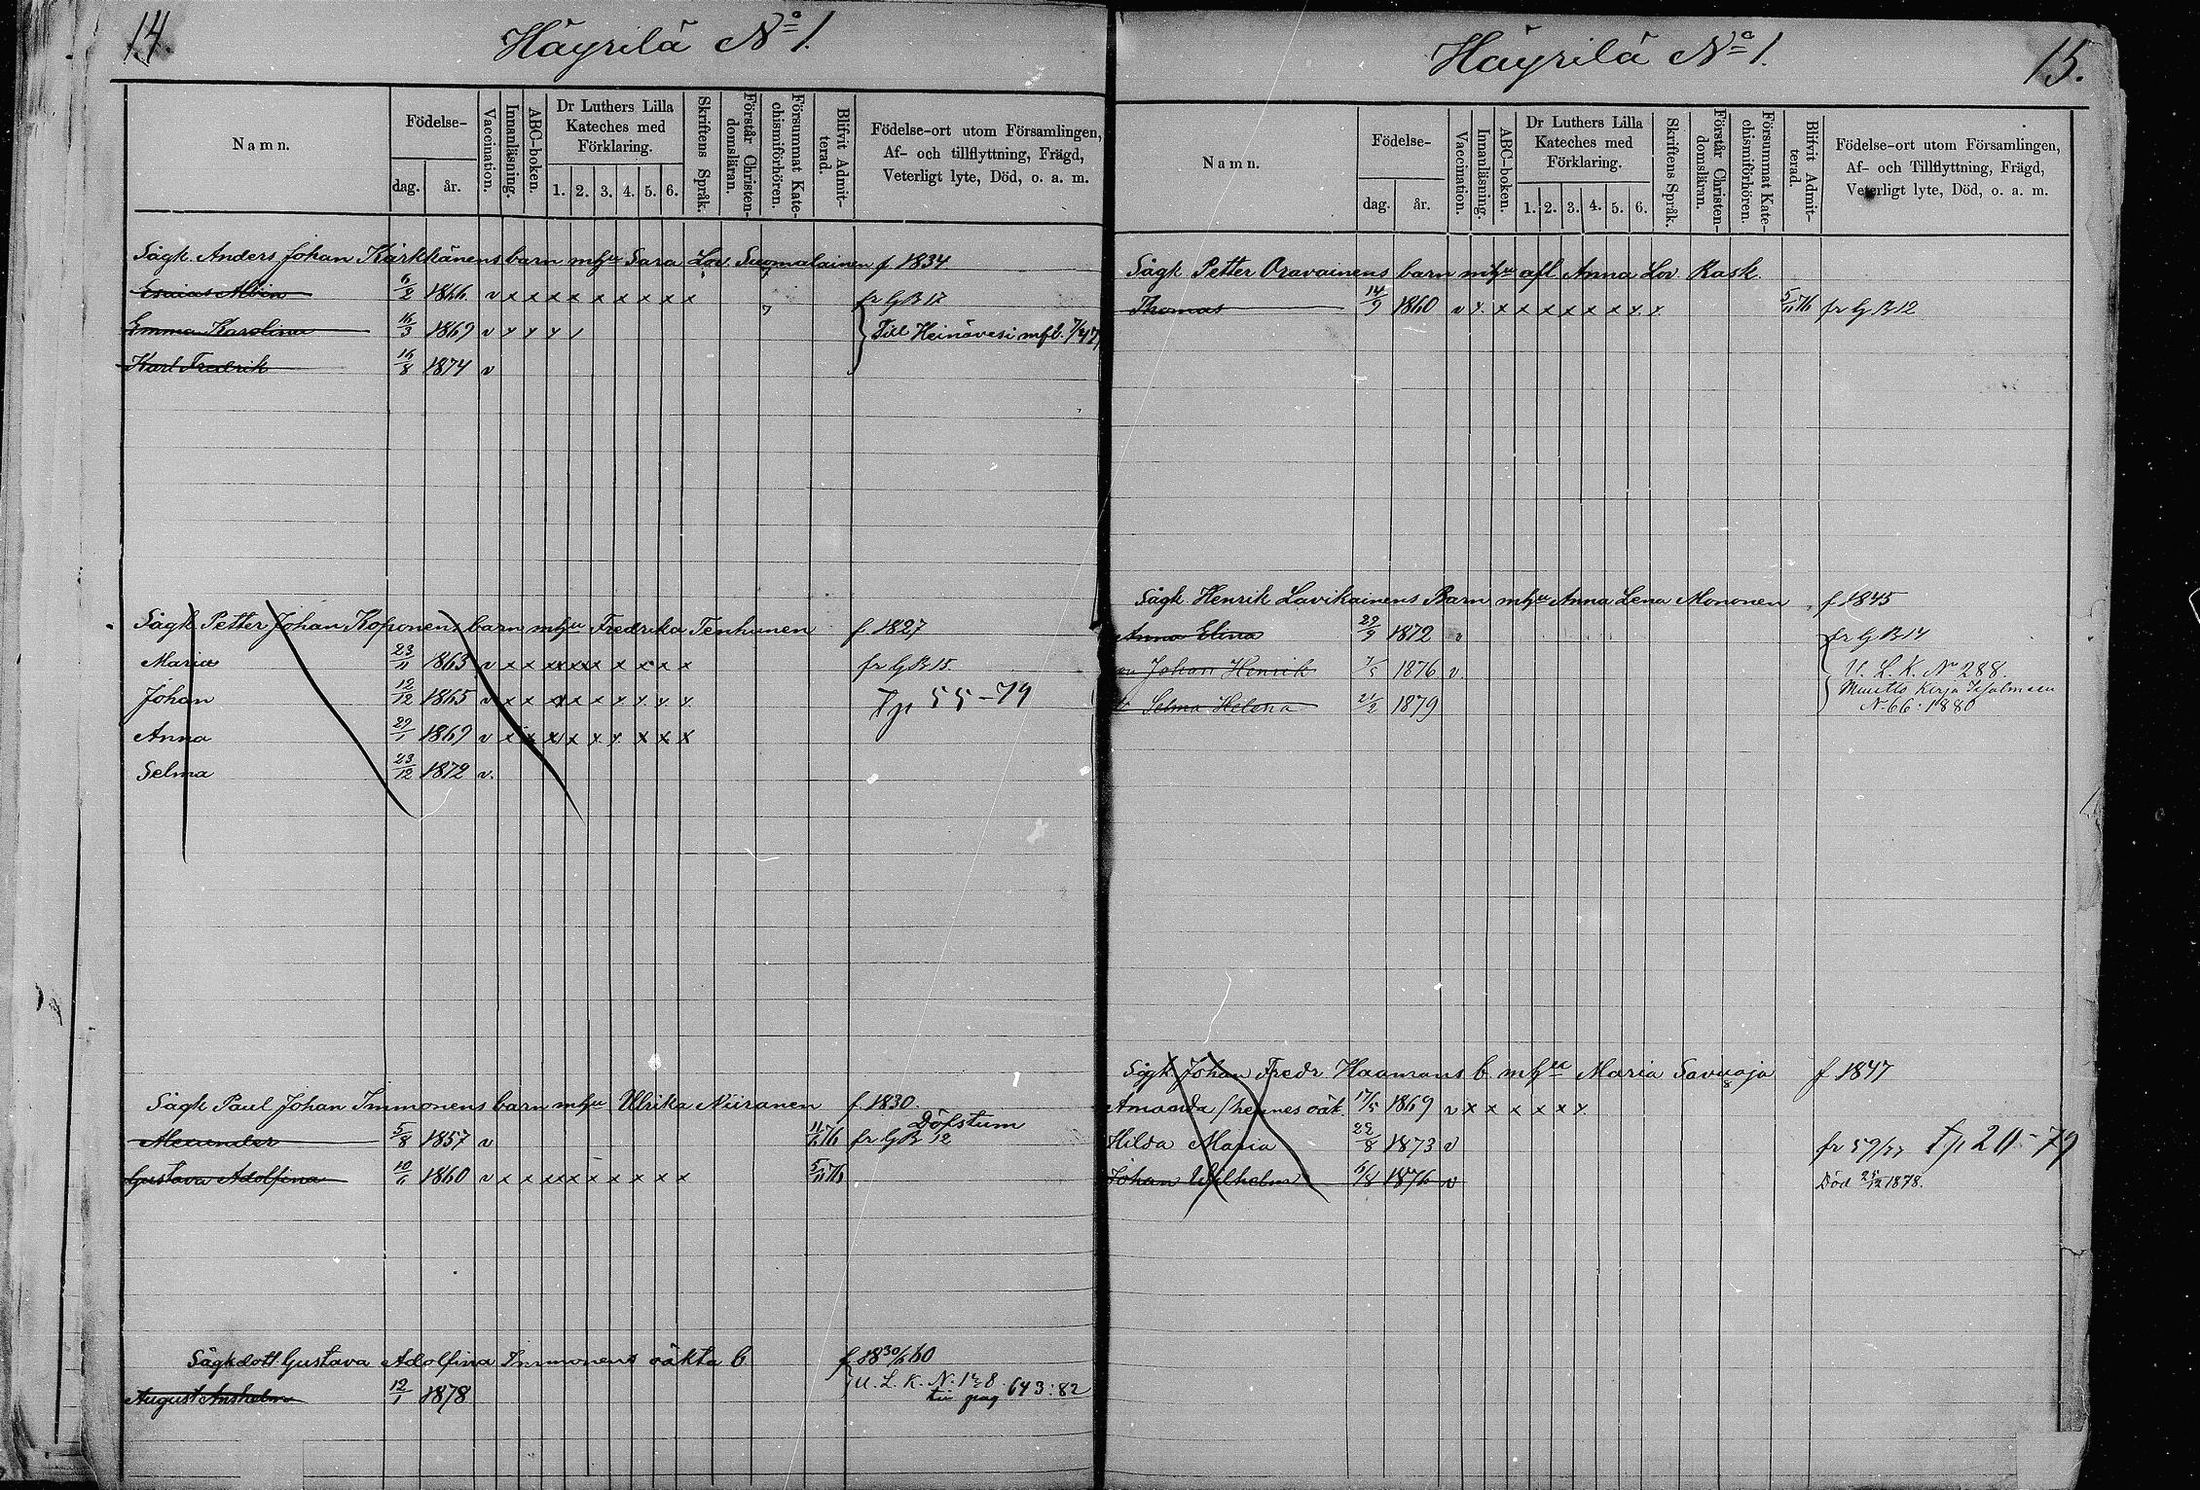 14.
Häyrilä No 1.
Namn.
Födelse-
dag.
år.
Vaccination.
Innanläsning.
ABC-boken.
Dr Luthers Lilla
Kateches med
Förklaring.
1. 2. 3. 4. 5. 6.
Skriftens Språk.
Förstår Christen-
domsläran.
Försummat Kate-
chismiförhören.
Blifvit Admit-
terad.
Födelse-ort utom Församlingen,
Af- och tillflyttning, Frägd,
Veterligt lyte, Död, o. a. m.
Sågk. Anders Johan Kärkkänens barn m hu Sara Lov. Suomalainen f 1834
Esaias Albin 6/2 1866 v x x x x x x x x x fr G B 17
Emma Karolina 16/3 1869 v x x x / Till Heinävesi mfb.
Karl Fredrik 16/8 1874 v
Sågk Petter Johan Koponens barn m hu Fredrika Tenhunen f 1827
Maria 23/11 1863 v x x x x x x x x x fr G B 15
Johan 12/12 1865 v x x x x x x x x x Tp 55-79
Anna 29/1 1869 v x x x x x x x x x
Selma 23/12 1872 v.
Sågk Paul Johan Immonens barn m hu Ulrika Niiranen f 1830.
Döfstum
Alexander 5/8 1857 v 11/6 76 fr G B 12
Gustava Adolfina 10/6 1860 v x x x x x x x x x 5/11 76
Sågkdott Gustava Adolfina Immonens oäkta b f 18 30/6 60
August Anshelm 12/1 1878 U. L. K. N. 128. 643:82
15.
Häyrilä No 1.
Namn.
Födelse-
dag.
år.
Vaccination.
Innanläsning.
ABC-boken.
Dr Luthers Lilla
Kateches med
Förklaring.
1. 2. 3. 4. 5. 6.
Skriftens Språk.
Förstår Christen-
domsläran.
Försummat Kate-
chismiförhören.
Blifvit Admit-
terad.
Födelse-ort utom Församlingen,
Af- och Tillflyttning, Frägd,
Veterligt lyte, Död, o. a. m.
Sågk Petter Oravainens barn m hu afl Anna Lov. Rask.
Thomas 14/9 1860 v x x x x x x x x x 5/11 76 fr G B 12
Sågk. Henrik Lavikainens Barn m hu Anna Lena Mononen f 1845
Anna Elina 29/9 1872 v fr G B 14
Johan Henrik 7/5 1876 v U. L. K. No 288.
Selma Helena 21/2 1879 Muutto Kirja
N. 66. 1880
Sågk Johan Fredr. Haamans b. m hu Maria Savuoja f 1847
Amanda / hennes oäk. 17/5 1869 v x x x x x x
Hilda Maria 22/8 1873 v fr 59/77 Tp 20-79
Johan Wilhelm 6/8 1876 v Död 25/12 1878.